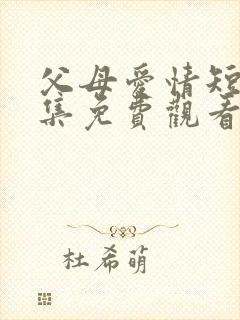 父母愛情短
集免費觀看
杜希萌